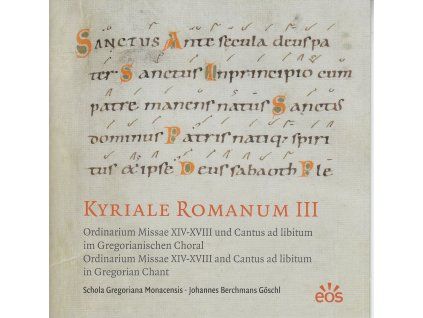 SANCTUS Ante secula deus pa
ter Sanctus Inprincipio cum
patre manens natus Sanctus
dominus Patris natiq; spiri
tus &ipse Deus sabaoth Ple
KYRIALE ROMANUM III
Ordinarium Missae XIV-XVIII und Cantus ad libitum
im Gregorianischen Choral
Ordinarium Missae XIV-XVIII and Cantus ad libitum
in Gregorian Chant
Schola Gregoriana Monacensis · Johannes Berchmans Göschl
eos